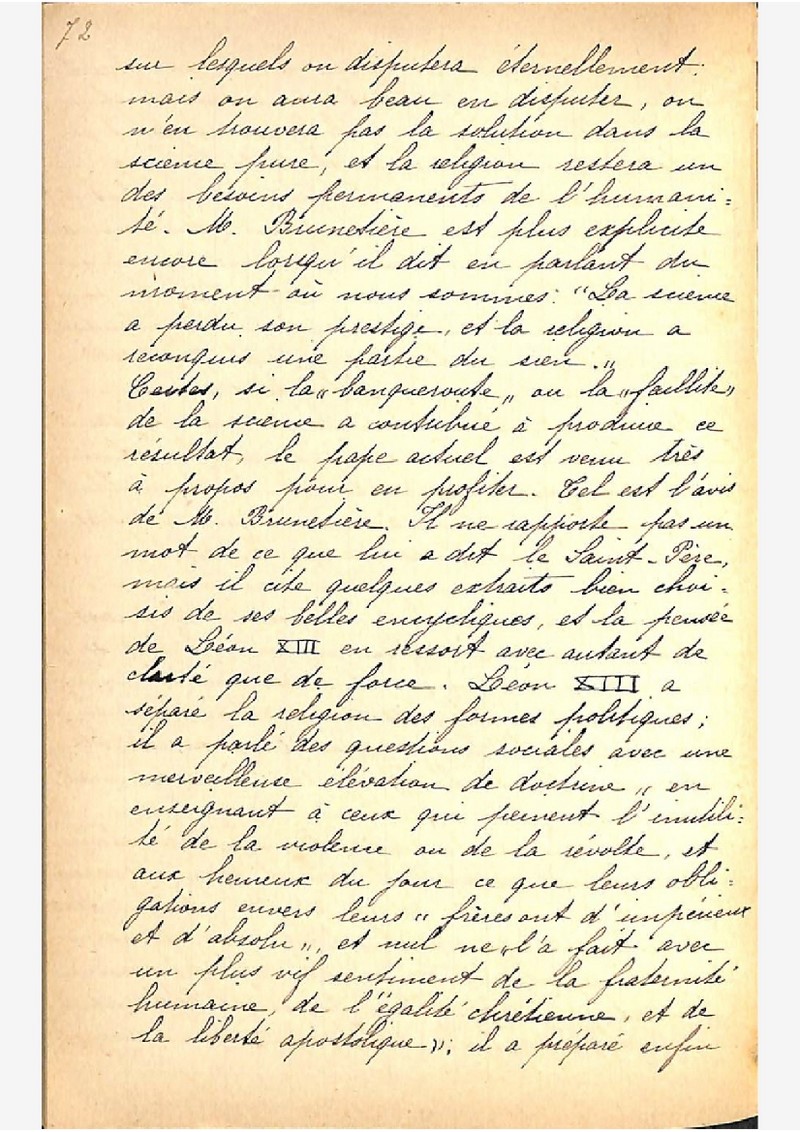 72
sur lesquels on disputera éternellement;
mais on aura beau en disputer, on
n'en trouvera pas la solution dans la
science pure, et la religion restera un
des besoins permanents de l'humani=
té. M. Brunetière est plus explicite
encore lorsqu'il dit en parlant du
moment où nous sommes: "La science
a perdu son prestige, et la religion a
reconquis une partie du sien.„
Certes, si la „banqueroute„ ou la „faillite„
de la science a contribué à produire ce
résultat, le pape actuel est venu très
à propos pour en profiter. Tel est l'avis
de M. Brunetière. Il ne rapporte pas un
mot de ce que lui a dit le Saint-Père,
mais il cite quelques extraits bien choi-
sis de ses belles encycliques, et la pensée
de Léon XIII en ressort avec autant de
clarté que de force. Léon XIII a
séparé la religion des formes politiques;
il a parlé des questions sociales avec une
merveilleuse élévation de doctrine „ en
enseignant à ceux qui peinent l'inutili=
té de la violence ou de la révolte, et
aux heureux du jour ce que leurs obli=
gations envers leurs „ frères ont d'impérieux
et d'absolu„, et nul ne „l'a fait avec
un plus vif sentiment de la fraternité
humaine, de l'égalité chrétienne, et de
la liberté apostolique„; il a préparé enfin